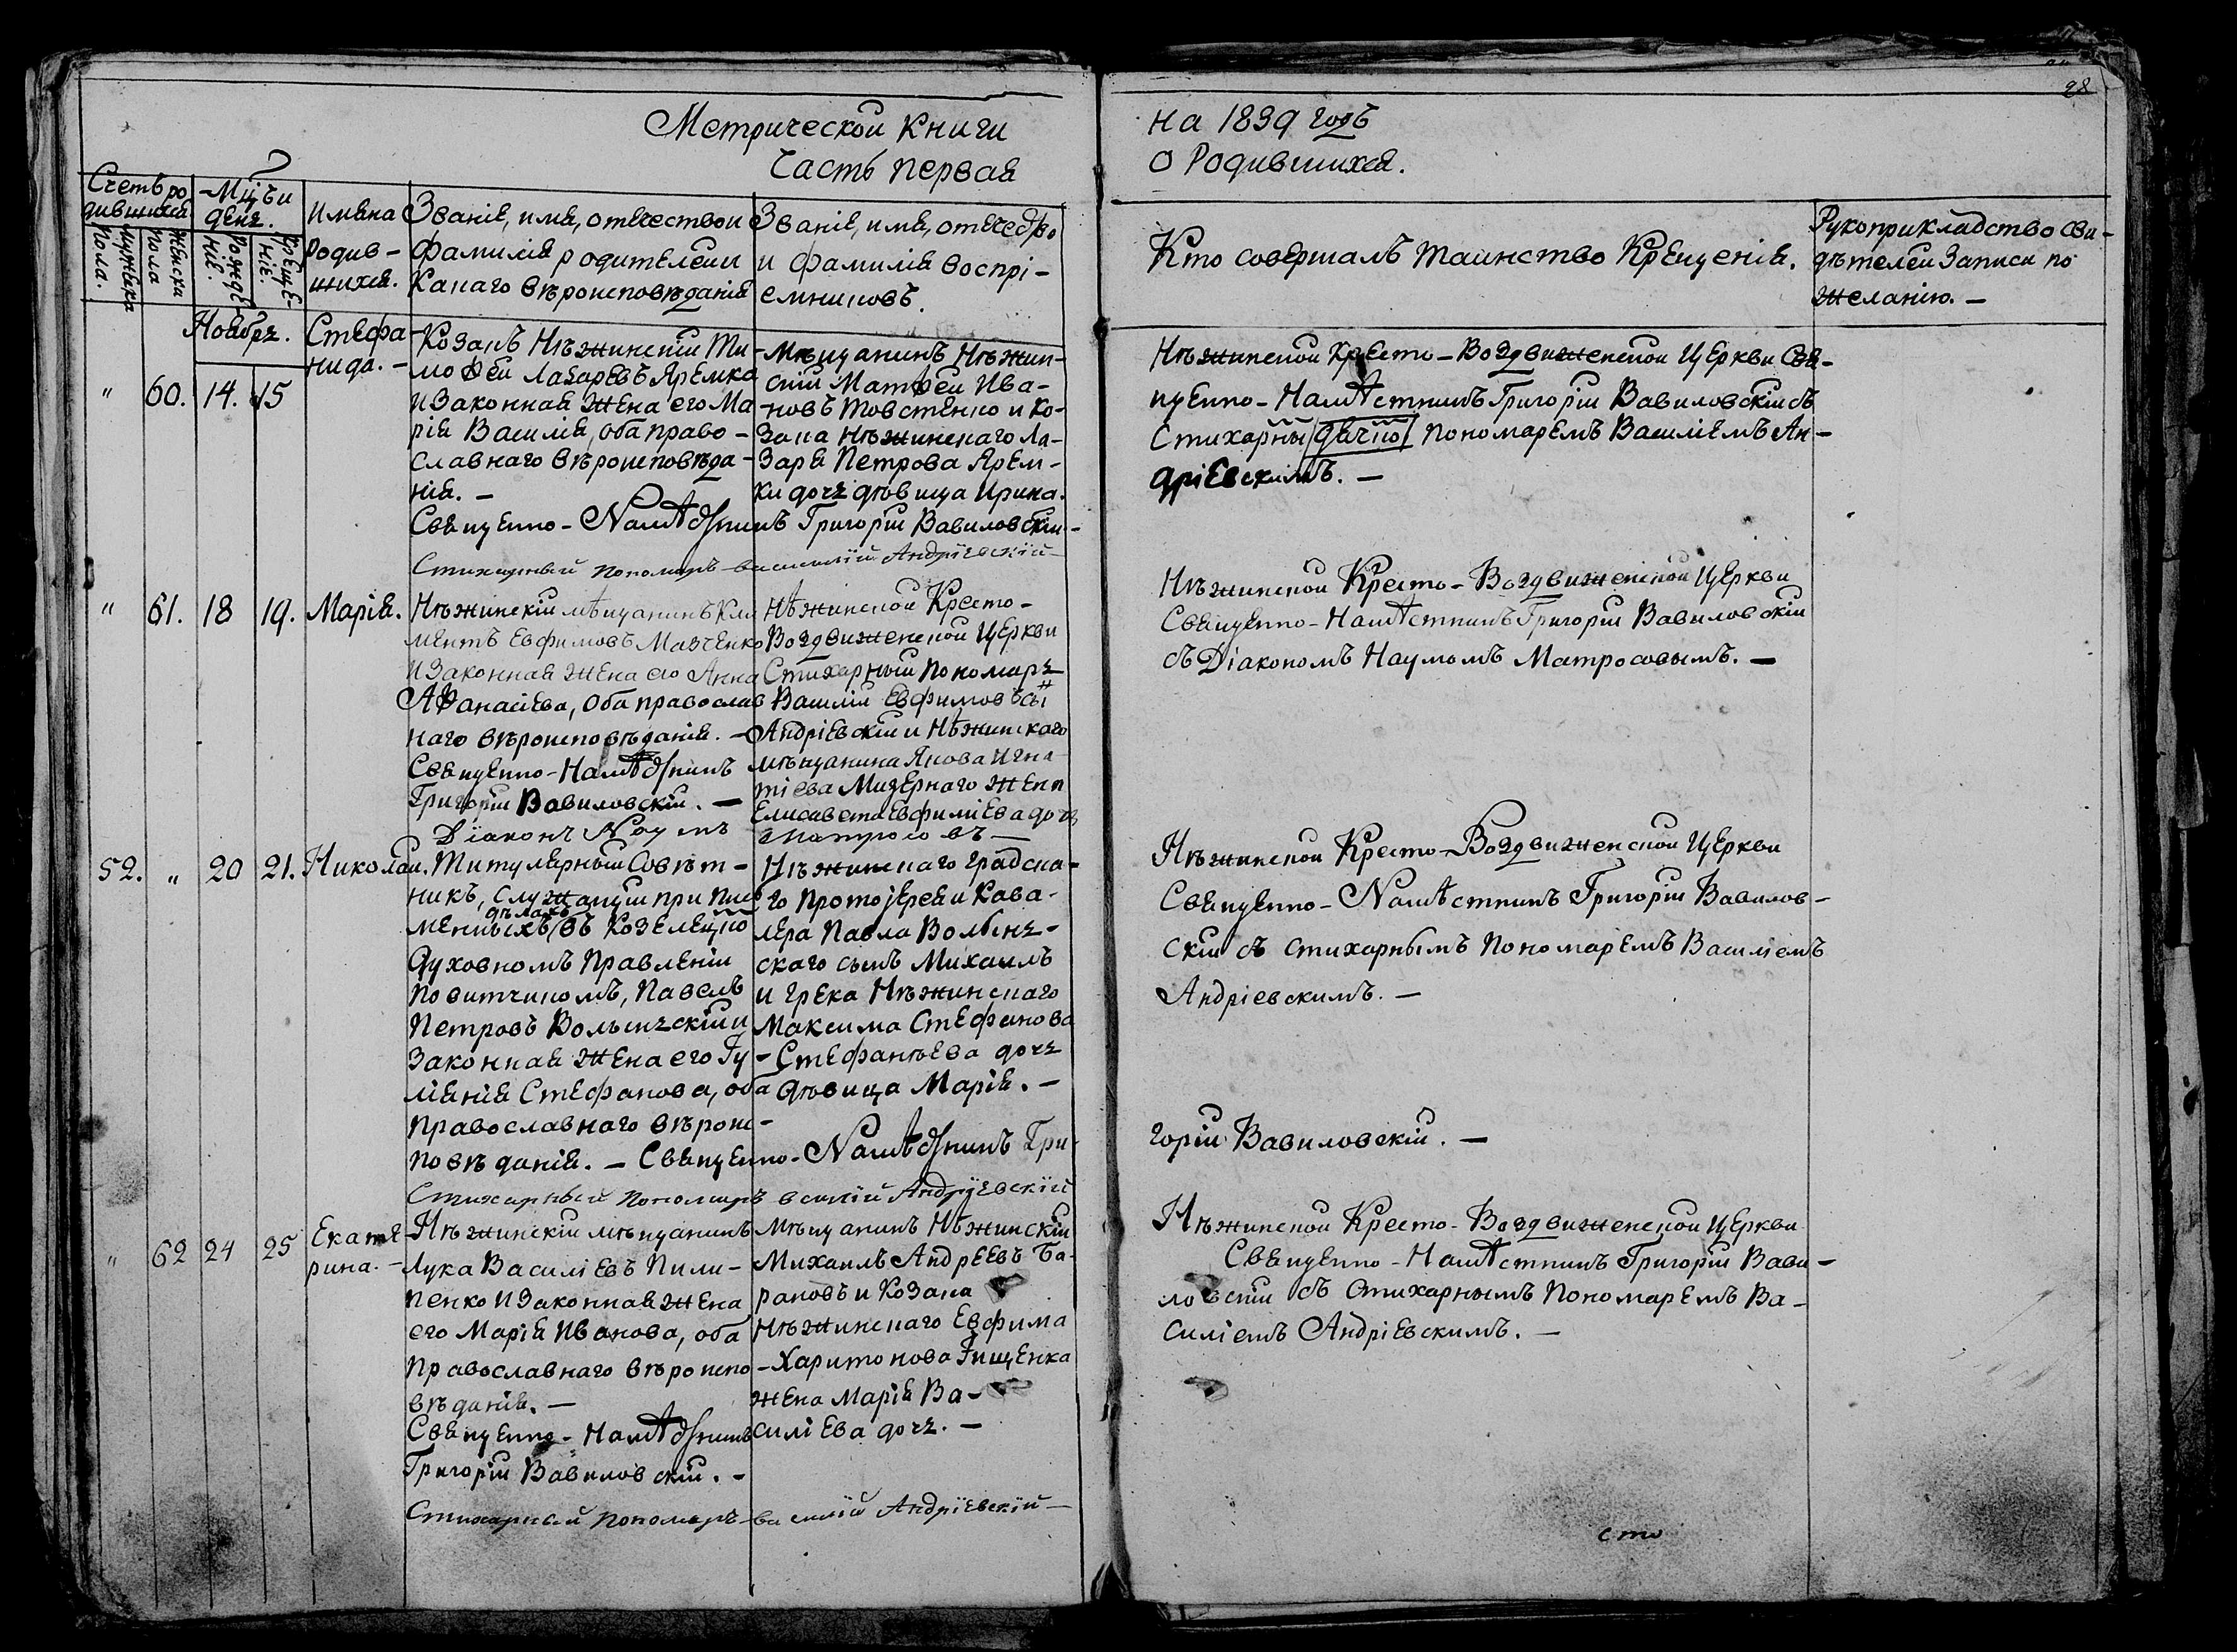 Метрической Книги
Часть Первая
на 1839 годъ
О Родившихся.
28
Счетъ ро
дившихся
Мужеска
пола.
Женска
пола
Мцъ и
день.
Рожде
нiе.
Креще-
нiе.
Имена
Родив-
шихся.
Званiе, имя, отечество и
Фамилiя родителей и
Какаго вѣроисповѣданiя
Званiе, имя, отечество
и фамилiя воспрi-
емниковъ.
Кто совершалъ таинство Крещенiя.
Рукоприкладство сви-
дѣтелей Записи по
желанiю. —
Ноябрь.
" 60. 14. 15
Стефа
нида. -
Козакъ Нѣжинскiй Ти-
моѳей Лазаревъ Яремка
и Законная Жена его Ма
рiя Васил, оба право-
славнаго вѣроисповѣда-
нiя. —
Мѣщанинъ Нѣжин-
скiй Матѳей Ива-
новъ Товстенко и Ко-
зака Нѣжинскаго Ла-
заря Петрова Ярем-
ки дочь дѣвица Ирина.
Священно-Намѣстникъ Григорiй Вавиловскiй-
Стихарный Пономарь василiй Андрiевскiй
Нѣжинской Кресто-Воздвиженской Церкви Свя-
щенно-Намѣстникъ Григорiй Вавиловскiй съ
Стихарны Пономаремъ Василiемъ Ан-
дрiевскимъ. —
" 61. 18 19. Марiя.
Нѣжинскiй мѣщанинъ Кли
ментъ Евфимовъ Мазченко
и Законная Жена его Анна
Аѳанасiева, оба православ
наго вѣроисповѣданiя. —
Священно-Намѣстникъ
Григорiй Вавиловскiй. —
Дiаконъ Наумъ Матросовъ —
Нѣжинской Кресто-
Воздвиженской Церкви
Стихарный Пономарь
Василiй Евфимовъ сы
Андрiевскiй и Нѣжинскаго
мѣщанина Якова Игна
тiева Мизернаго Жена
Елисавета Евфимiева дочь
Нѣжинской Кресто-Воздвиженской Церкви
Священно-Намѣстникъ Григорiй Вавиловскiй
съ Дiакономъ Наумомъ Матросовымъ. —
52. " 20 21. Николай.
Титулярный Совѣт-
никъ, Служащiй при Пис
дѣлахъ
менныхъ въ Козелецко
Духовномъ Правленiи
Повитчикомъ, Павелъ
Петровъ Волынскiй и
Законная Жена его Iу-
лiянiя Стефанова, оба
Православнаго вѣроис-
повѣданiя. — Священно-Намѣстникъ Гри-
Стихарный Пономарь василiй Андрiевскiй
Нѣжинскаго Градска-
го Протоiерея и Кава-
лера Павла Волынь-
скаго сынъ Михаилъ
и Грека Нѣжинскаго
Максима Стефанова
Стефанѣева дочь
дѣвица Марiя. —
Нѣжинской Кресто-Воздвиженской Церкви
Священно-Намѣстникъ Григорiй Вавилов-
скiй съ стихарнымъ Пономаремъ Василiемъ
Андрiевскимъ. —
горiй Вавиловскiй. —
" 62 24 25
Екате-
рина. -
Нѣжинскiй мѣщанинъ
Лука Василiевъ Пили-
пенко и Законная Жена
его Марiя Иванова, оба
Православнаго вѣроиспо-
вѣданiя. —
Священно-Намѣстникъ
Григорiй Вавиловскiй. -
Стихарный Пономарь василiй Андрiевскiй —
Мѣщанинъ Нѣжинскiй
Михаилъ Андреевъ Ба-
рановъ и Козака
Нѣжинскаго Евфима
Харитонова Тищенка
жена Марiя Ва-
силiева дочь. —
Нѣжинской Кресто-Воздвиженской Церкви
Священно-Намѣстникъ Григорiй Вави-
ловскiй съ Стихарнымъ Пономаремъ Ва-
силiемъ Андрiевскимъ. —
сто